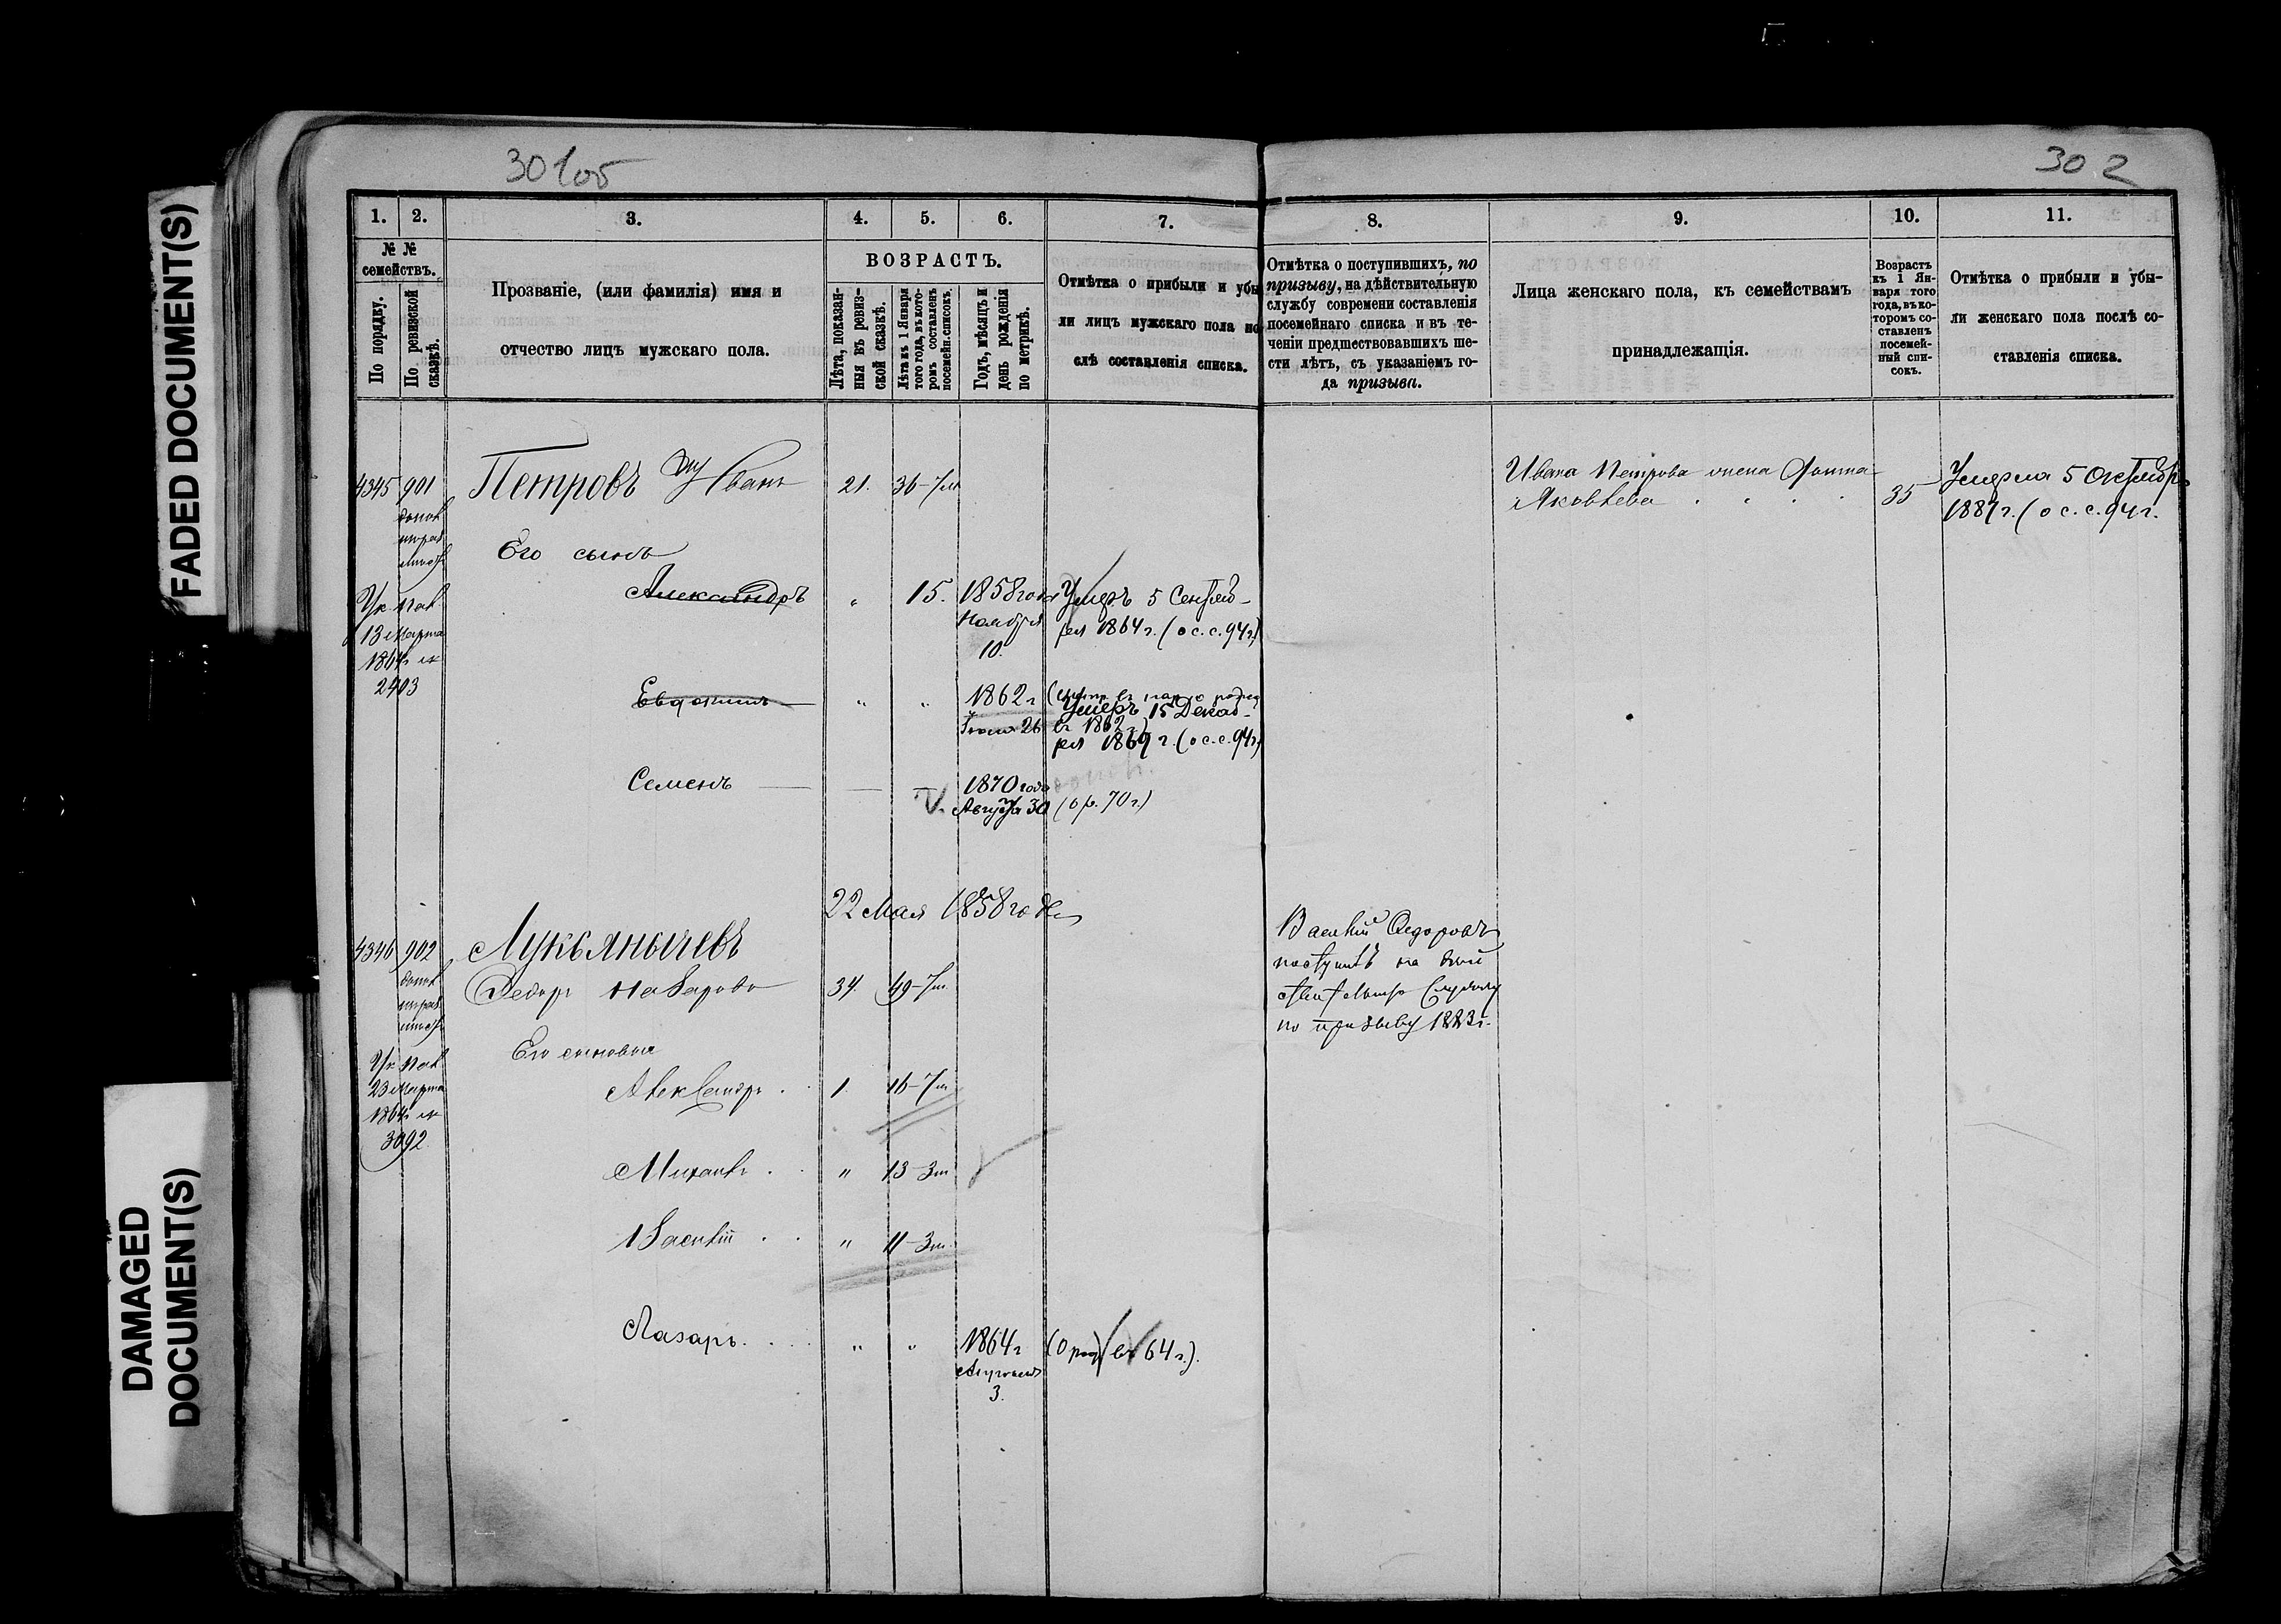 FADED DOCUMENT(S)
DAMAGED
DOCUMENT(S)
301об
302
1.
2.
3.
4.
5.
6.
7.
8.
9.
10.
11.
№ №
семействъ.
По порядку.
По ревизской
сказкѣ.
Прозваніе, (или фамилія) имя и
отчество лицъ мужскаго пола.
ВОЗРАСТЪ.
Лѣта, показан-
ныя въ ревиз-
ской сказкѣ.
Лѣта къ 1 Января
того года, въ кото-
ромъ составленъ
посемейн. списокъ.
Годъ, мѣсяцъ и
день рожденія
по метрикѣ.
Отмѣтка о прибыли и убы
ли лицъ мужскаго пола по
слѣ составленія списка.
Отмѣтка о поступившихъ, по
призыву, на дѣйствительную
службу современи составленія
посемейнаго списка и въ те-
ченіи предшествовавшихъ ше-
сти лѣтъ, съ указаніемъ го-
да призыва.
Лица женскаго пола, къ семействамъ
принадлежащія.
Возрастъ
къ 1 Ян-
варя того
года, въ ко-
торомъ со-
ставленъ
посемей-
ный спи-
сокъ.
Отмѣтка о прибыли и убы-
ли женскаго пола послѣ со-
ставленія списка.
4345 901 Петровъ Иванъ 21. 36-7м
Ивана Петрова жена
Яковлева 35
Умерла 5 Октябр.
1887 г. (о с. с. 94 г.
Его сынъ
Александръ " 15. 1858 года
Ноября
10.
Умеръ 5 Сентяб-
ря 1864 г. (о с. с. 94 г.)
13 Марта
1864 г №
2403
Евдокимъ " " 1862 г
26
Умеръ 15 Декаб-
въ 1862 г.)
ря 1869 г. (о с. с. 94 г.)
Семенъ 1870 года
Августа 30 (о р. 70 г.)
22 Мая 1858 года
4346 902 Лукьянычевъ
Федоръ Назаровъ 34. 49-7м.
Василій Федоровъ
поступилъ на дѣй
ствительную службу
по призыву 1883 г.
Его сыновья
Александръ 1. 16-7м
23 Марта
1864 г №
3092
Михаилъ " 13-3м
Василій " 11-3м.
Лазарь " " 1864 г
3.
(О род. въ 64 г.).